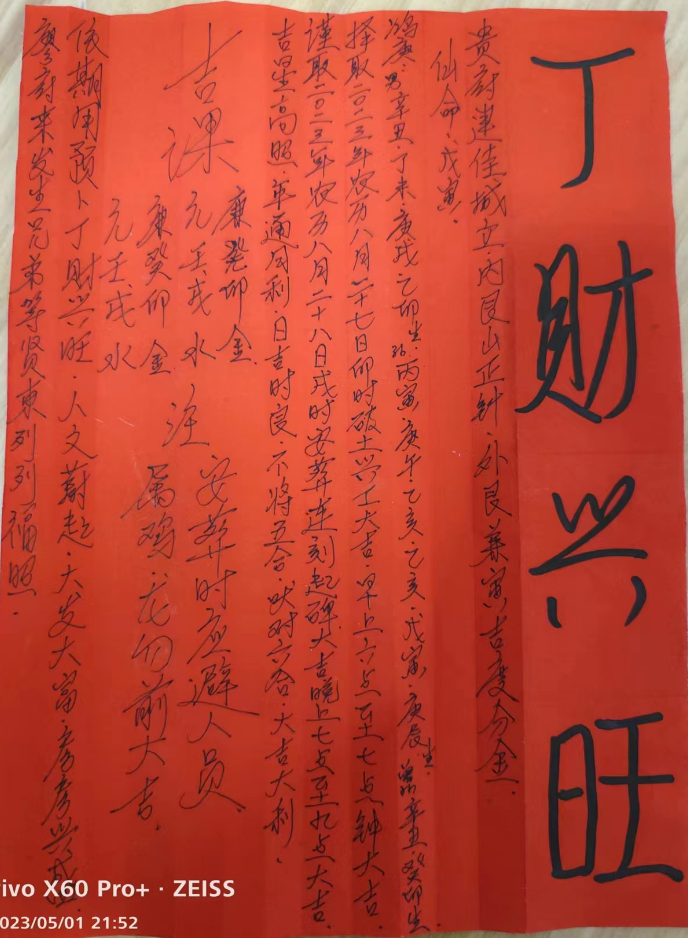 丁财兴旺
贵府建佳城立内艮山正针·外艮兼寅吉度分金.
仙命·戊寅.
鸿庚·男辛丑·丁未·庚戌·乙卯生·丙寅·庚午·乙亥·乙亥·戊寅·庚辰生 辛丑·癸卯生
择取二〇二三年农历八月二十七日卯时破土兴工大吉·早上六点至七点钟大吉.
谨取二〇二三年农历八月二十八日戌时安葬连刻起碑大吉晚上七点至九点大吉.
吉星高照·年通月利·日吉时良·不将五合·吠对六合·大吉大利.
吉课
廉癸卯金
元壬戌水
廉癸卯金
元壬戌水
注
安葬时应避人员
属鸡·龙勿前大吉.
依期用预卜丁财兴旺·人文蔚起·大发大富·房房兴盛.
廖府荣发生兄弟等贤东列列福照.
vivo X60 Pro+ · ZEISS
2023/05/01 21:52